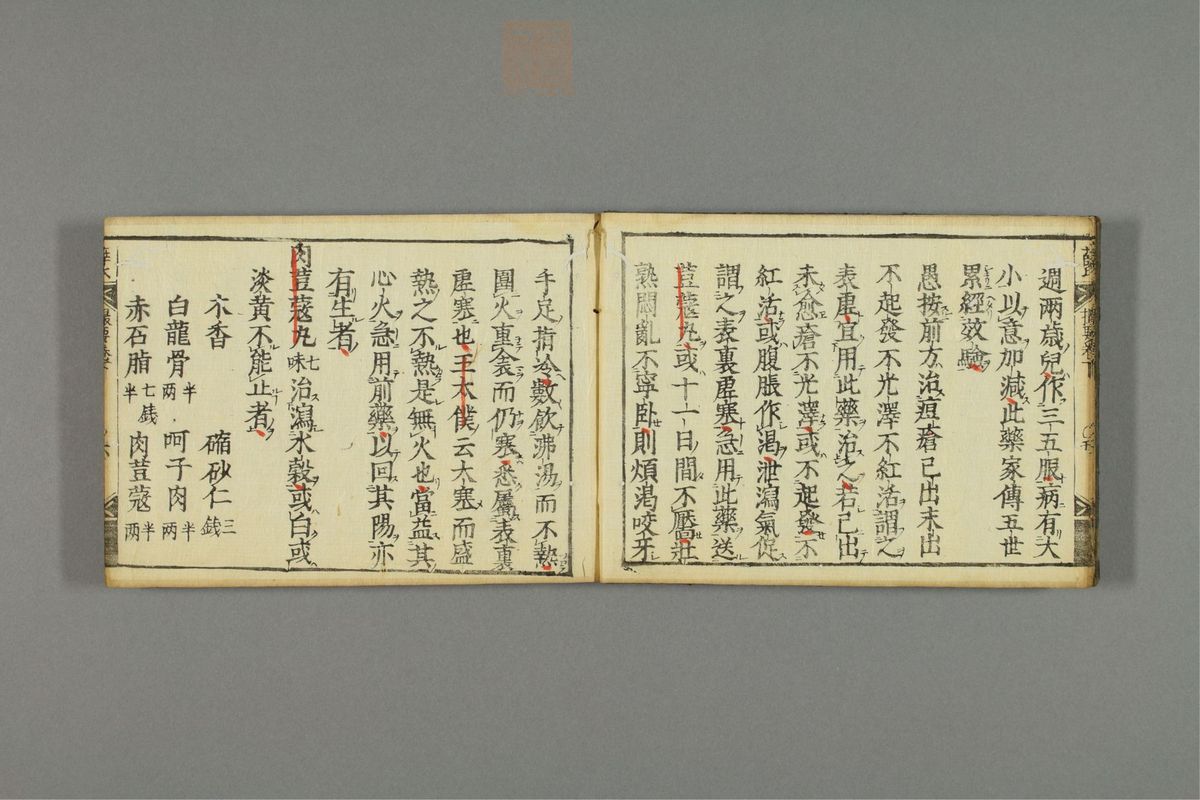 週兩歳兒作三五服病有大
小以意加減此藥家傳五世
累經效驗
愚按前方治痘瘡已出未出
不起發不光澤不紅活謂之
表虛宜用此藥治之若已出
未愈瘡不光澤或不起發不
紅活或腹脹作渴泄瀉氣促
謂之表裏虛寒急用此藥送
荳蔻丸或十一日間不靨壯
熱悶亂不寧臥則煩渴咬牙
手足指冷數飲沸湯而不熱
圍火重衾而仍寒悉屬表裏
虛寒也王太僕云大寒而盛
熱之不熱是無火也當益其
心火急用前藥以回其陽亦
有生者
肉荳蔻丸七味治瀉水穀或白或
淡黃不能止者
木香 縮砂仁三錢
白龍骨半兩 呵子肉半兩
赤石脂七錢半 肉荳蔻半兩